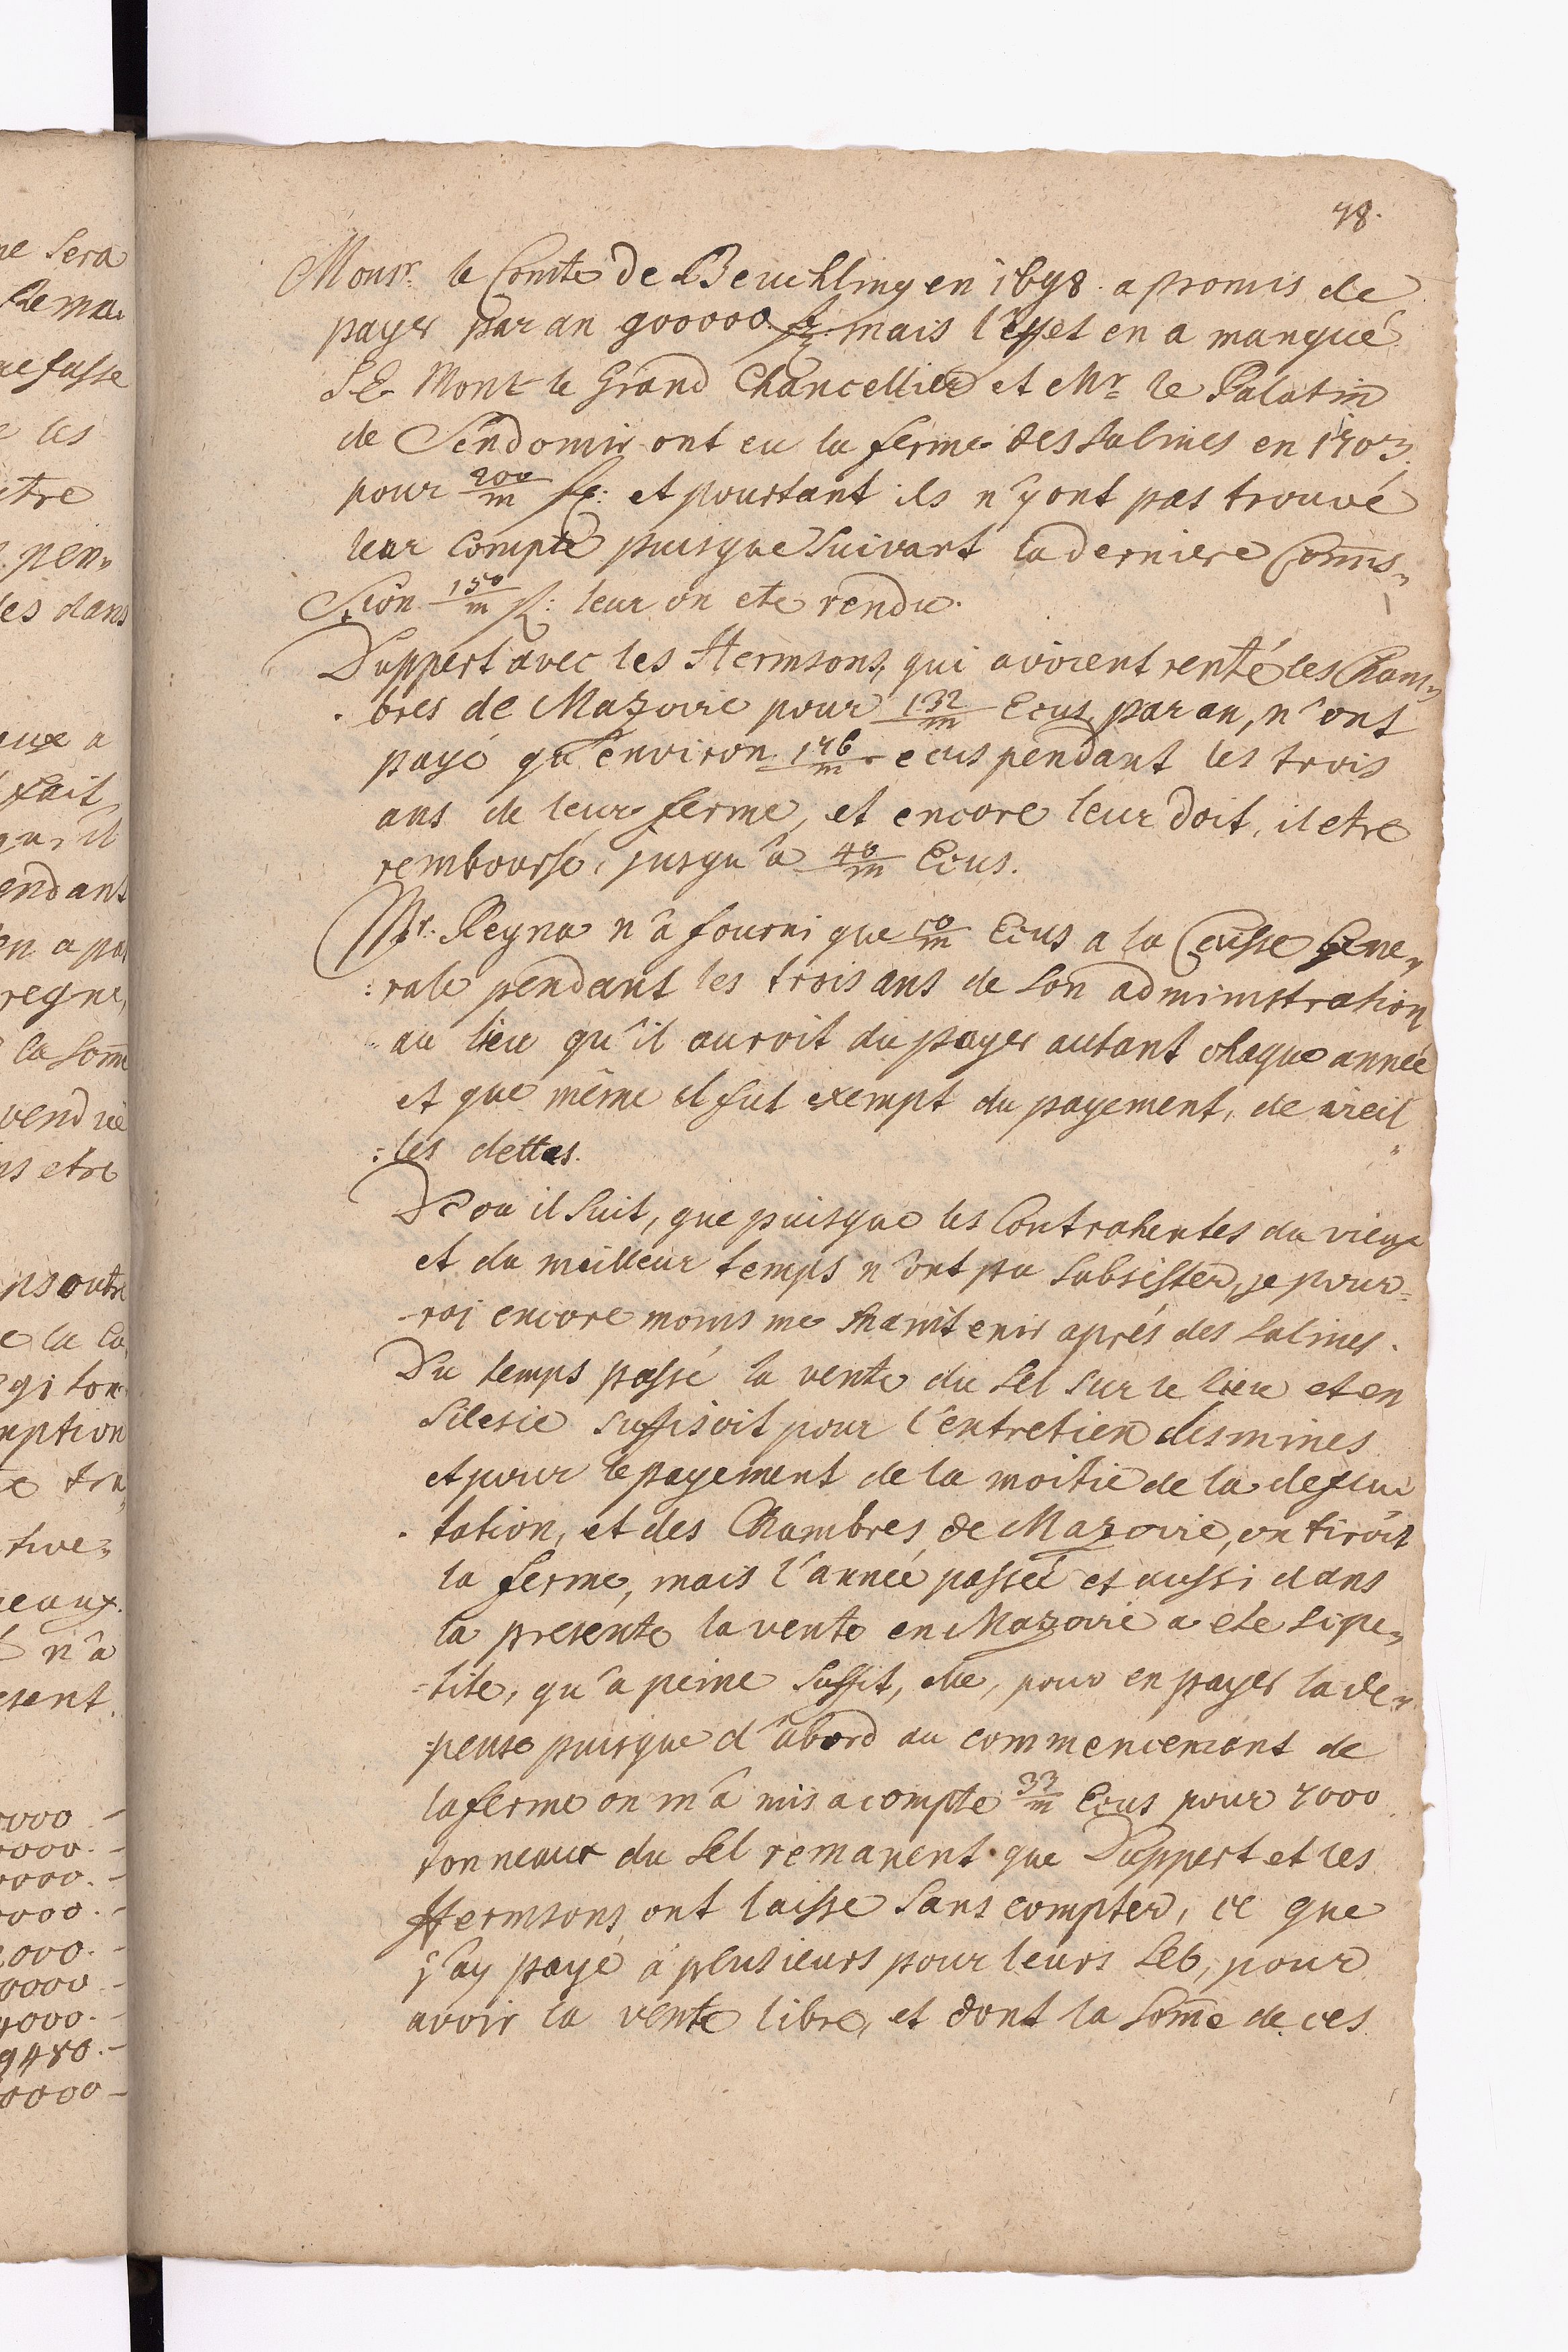 ne sera
Rema
ue fusse
e les
etre
pen„
les dans
eux a
fait
qu, il
endant
en a pas
regne,
la som̄e
vendûe
ns etre
ps outre
e la
mption
tive„
eaux.
n'a
esent.
000. -
000. -
000. -
000. -
000. -
0000 -
4000. -
9480. -
0000 -
78.
Monsr. le Comte de Beuchling en 1698. a promis de
payer par an 900000. mais l'effet en a manqué
S E Monr le Grand Chancellier et Mr le Palatin
de Sendomir ont eu la ferme des Salines en 1703.
pour 200/m et pourtant ils n'y ont pas trouvé
leur compte puisque suivant la derniere Com̄is„
sion 150/m leur on ete rendu.
Duppert avec les Hermsons, qui avoient renté les Cham„
bres de Mazovie pour 132/m Ecus par an, n'ont
payé qu'environ 176/m ecus pendant les trois
ans de leur ferme, et encore leur doit, il etre
rembourse, jusqu'a 40/m Ecus.
Mr. Reyna n'a fourni que 50/m Ecus a la Caisse Gene„
:rale pendant les trois ans de son administration
au lieu qu'il auroit du payer autant chaque année
et que même il fut exempt du payement, de vieil„
:les dettes.
D'ou il suit, que puisque les Contrahentes du vieux
et du meilleur temps n'ont pu subsister, je pour=
-roi encore moins me maintenir aprés des Salines.
Du temps passé la vente du Sel sur le lieu et en
Silesie suffisoit pour l'entretien des mines
et pour le payement de la moitie de la
tation, et des Chambres de Mazovie, on tiroit
la ferme, mais l'année passée et aussi dans
la presente la vente en Mazovie a ete si pe„
-tite, qu'a peine suffit, elle, pour en payer la de„
:pense puisque d'abord au commencement de
la ferme on m'a mis a compte 33/m Ecus pour 7000
tonneaux du Sel remanent que Duppert et les
Hermsons ont laisse sans compter, ce que
j'ay payé a plusieurs pour leurs Sels, pour
avoir la vente libre, et dont la som̄e de ces